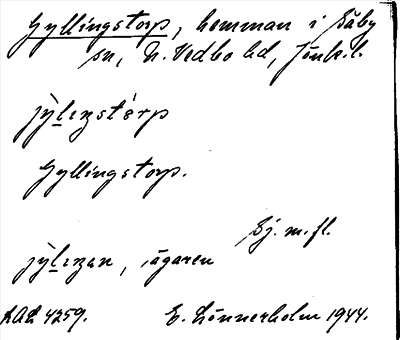 Gyllingstorp, hemman i Säby
sn, N. Vedbo hd, Jönk. l.
jy̌lɪŋstórp
Gyllingstorp.
Sj. m. fl.
jy̌lɪŋan, ägaren
LAL 4259. E. Lönnerholm 1944.